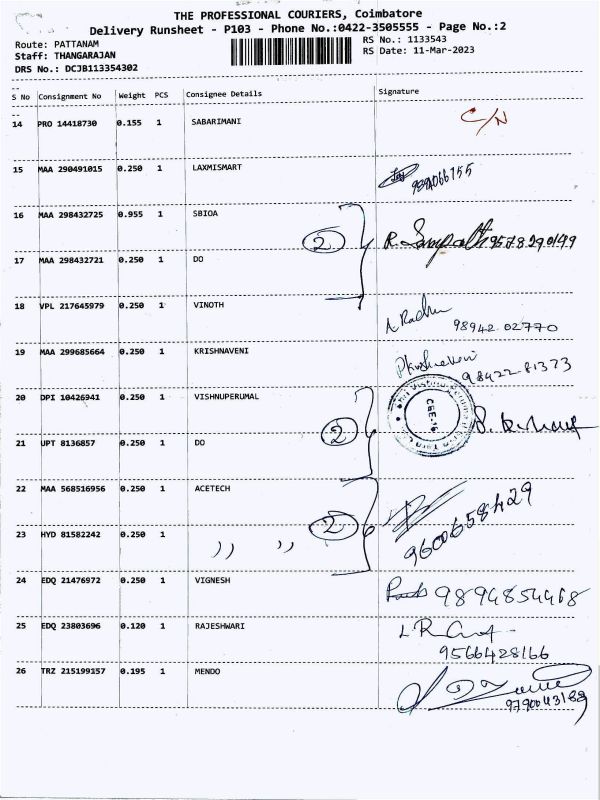 THE PROFESSIONAL COURIERS, Coimbatore
Delivery Runsheet - P103 - Phone No.:0422-3505555 - Page No.:2
Route: PATTANAM
RS No.: 1133543
Staff: THANGARAJAN
RS Date: 11-Mar-2023
DRS No.: DCJB113354302
S No Consignment No Weight PCS Consignee Details Signature
14 PRO 14418730 0.155 1 SABARIMANI C/N
15 MAA 290491015 0.250 1 LAXMISMART
16 MAA 298432725 0.955 1 SBIOA
2 R. Sampath 9578290149
17 MAA 298432721 0.250 1 DO
18 VPL 217645979 0.250 1 VINOTH
98942 02770
19 MAA 299685664 0.250 1 KRISHNAVENI
98422 81373
20 DPI 10426941 0.250 1 VISHNUPERUMAL
CBE-16
2
21 UPT 8136857 0.250 1 DO
22 MAA 568516956 0.250 1 ACETECH
2 9600658429
23 HYD 81582242 0.250 1 )) ))
24 EDQ 21476972 0.250 1 VIGNESH
9894854468
25 EDQ 23803696 0.120 1 RAJESHWARI
9566428166
26 TRZ 215199157 0.195 1 MENDO